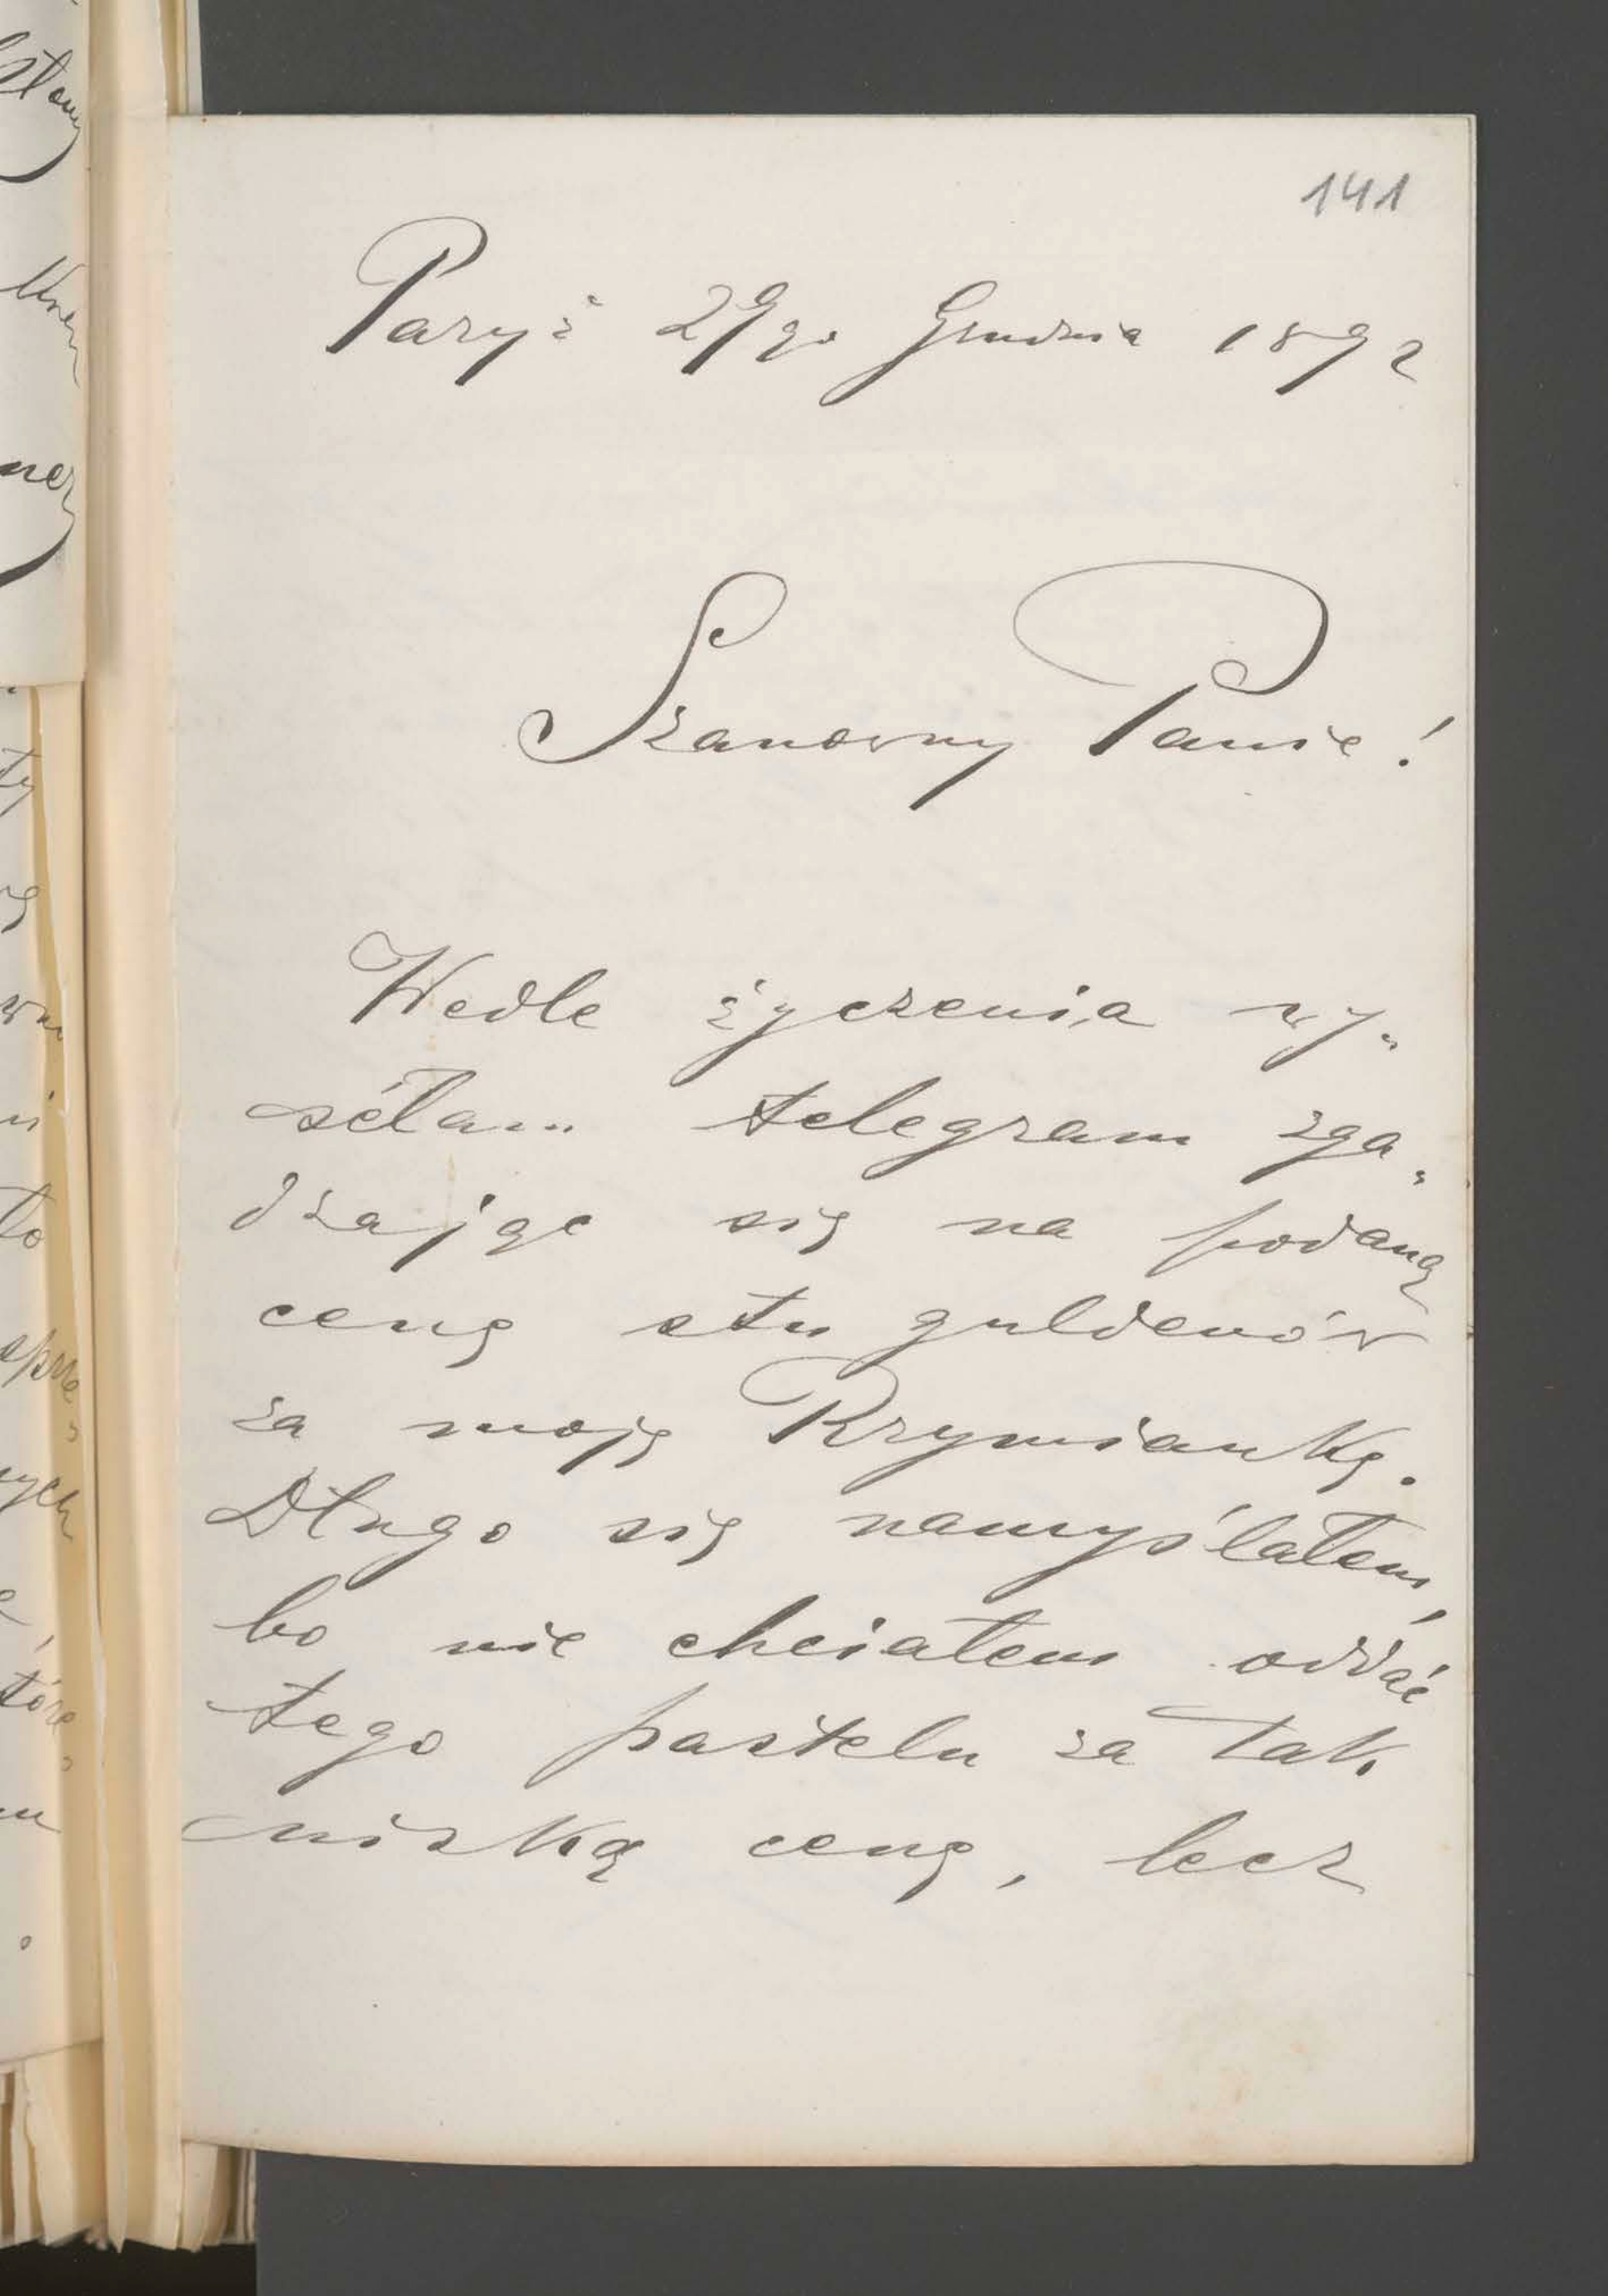 141
Paryż 29go Grudnia 1892
Szanowny Panie!
Wedle życzenia wy-
séłam telegram zga-
dzając się na podaną
cenę stu guldenów
za moję Rzymiankę.
Długo się namyślałem,
bo nie chciałem oddać
tego pastelu za tak
nizką cenę, lecz